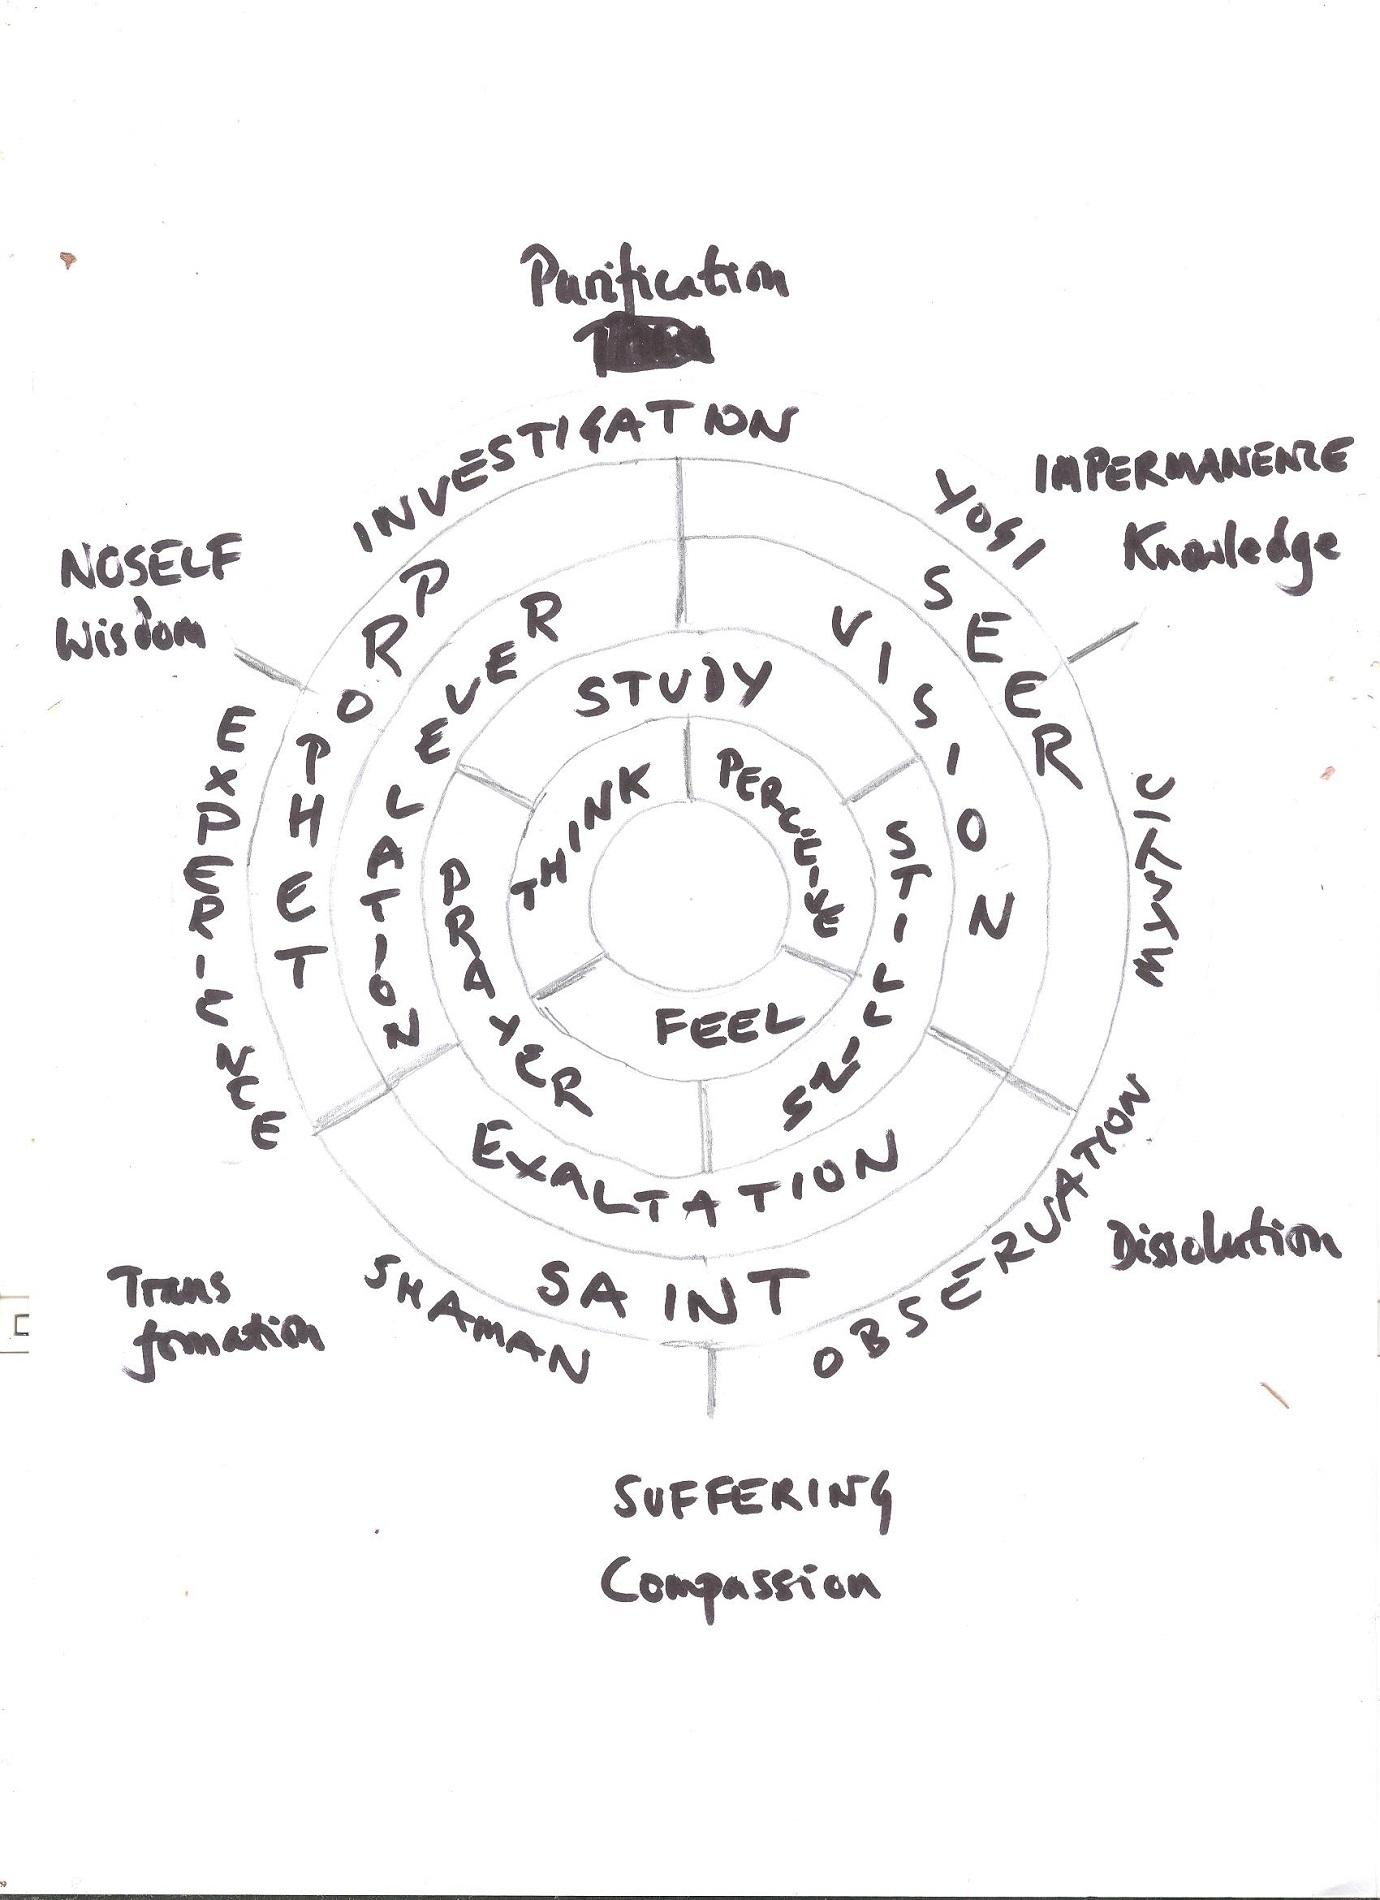 Purification
INVESTIGATION
YOGI
IMPERMANENCE
Knowledge
NOSELF
Wisdom
PROPHET
SEER
REVELATION
VISION
STUDY
THINK
PERCEIVE
EXPERIENCE
MYSTIC
PRAYER
STILLNESS
FEEL
EXALTATION
SAINT
SHAMAN
OBSERVATION
Dissolution
Trans
formation
SUFFERING
Compassion